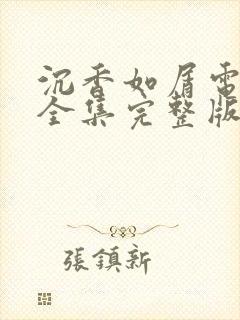 沉香如屑電
全集完整版
張鎮新